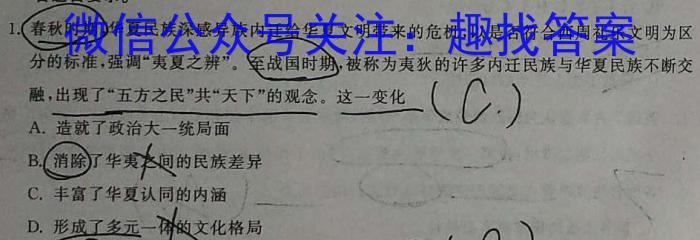 1. 春秋时期,华夏民族深感异族内迁给华夏文明带来的危机,以是否符合西周礼乐文明为区
微信公众号关注:趣找答案
分的标准,强调“夷夏之辨”。至战国时期,被称为夷狄的许多内迁民族与华夏民族不断交
融,出现了“五方之民”共“天下”的观念。这一变化 (C.)
A. 造就了政治大一统局面
B. 消除了华夷之间的民族差异
C. 丰富了华夏认同的内涵
D. 形成了多元一体的文化格局